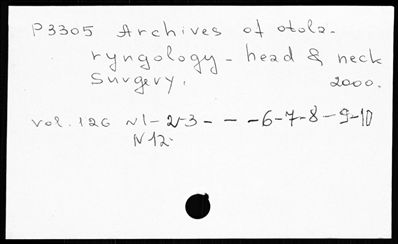 P3305 Archives of otola-
ryngology - head & neck
Surgery.
2000.
vol. 126 N1-2-3- - - -6-7-8-9-10
N12.